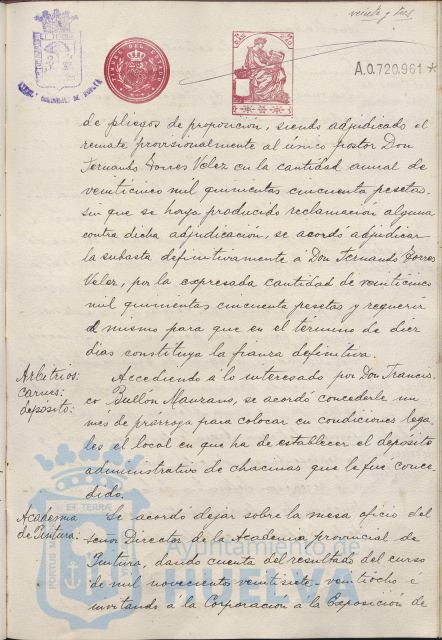 veinte y tres
A.0.720,961*
de pliegos de proporcion, siendo adjudicado el
remate provisionalmente al único postor Don
Fernando Torres Velez en la cantidad anual de
veinticinco mil quinientas cincuenta pesetas
sin que se haya producido reclamacion alguna
contra dicha adjudicación, se acordó adjudicar
la subasta definitivamente a Don Fernando Torres
Velez, por la expresada cantidad de veinticinco
mil quinientas cincuenta pesetas y requerir
al mismo para que en el término de diez
dias constituya la fianza definitiva.
Arbitrios:
carnes:
depósito:
Accediendo á lo interesado por Don Francis
co Bullón Manzano, se acordó concederle un
més de prórroga para colocar en condiciones lega
les el local en que ha de establecer el depósito
administrativo de chacinas que le fué conce
dido.
Academia
de Pintura:
Se acordó dejar sobre la mesa oficio del
Señor Director de la Academia provincial de
Pintura, dando cuenta del resultado del curso
de mil novecientos veintisiete-veintiocho é
invitando á la Corporacion a la Exposición de
Ayuntamiento de
HUELVA